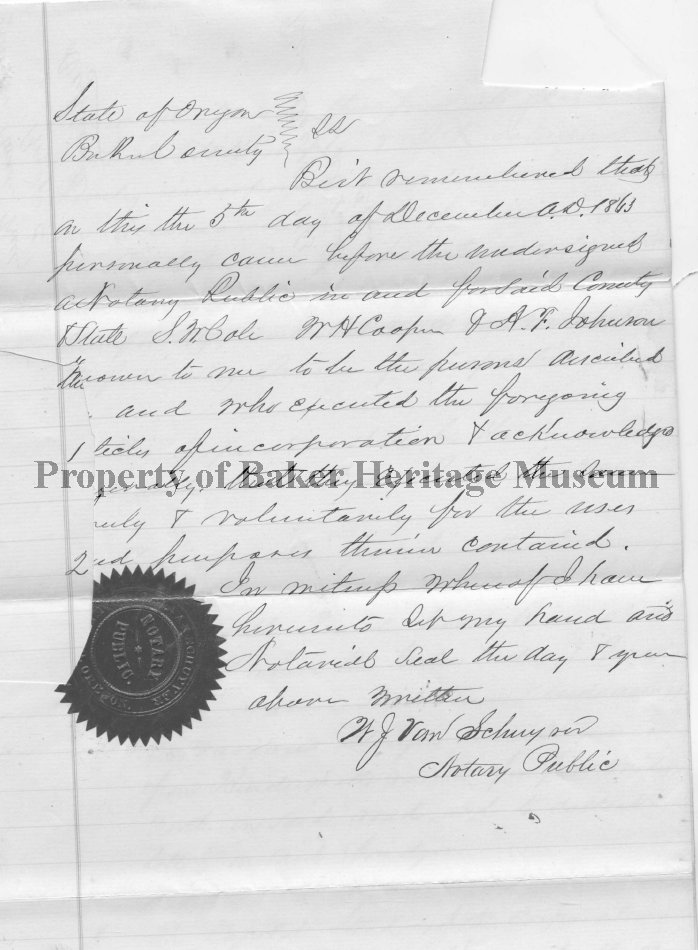 State of Oregon
Baker County ss
Be it remembered that
on this the 5th day of December A.D. 1863
personally came before the undersigned
a Notary Public in and for said County
& State S. W. Cole W H Cooper & A. F. Johnson
Known to me to be the persons discribed
and who executed the foregoing
ticles of incorporation & acknowledged
that they executed the same
eely & voluntarily for the uses
and purposes therein contained.
In witness whereof I have
hereunto set my hand and
Notarial Seal the day & year
above written
W J Van Schuyver
Notary Public
NOTARY
PUBLIC
OREGON
Property of Baker Heritage Museum